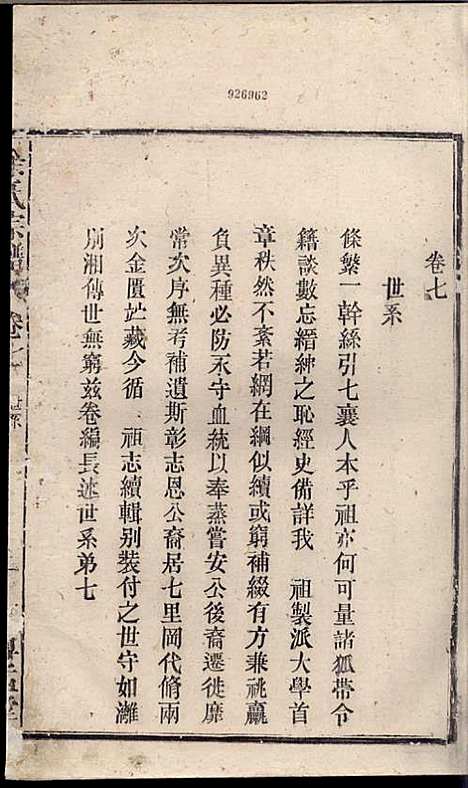 926962
卷七
世系
條繫一幹絲引七襄人本乎祖亦何可量諸狐帶令
籍談數忘縉紳之恥經史備詳我 祖製派大學首
章秩然不紊若網在綱似續或窮補綴有方兼祧羸
負異種必防永守血統以奉蒸嘗安公後裔遷徙靡
常次序無考補遺斯彰志恩公裔居七里岡代脩兩
次金匱妣藏今循 祖志續輯別裝付之世守如灕
別湘傳世無窮茲卷編長述世系弟七
氏宗譜
卷七
世系